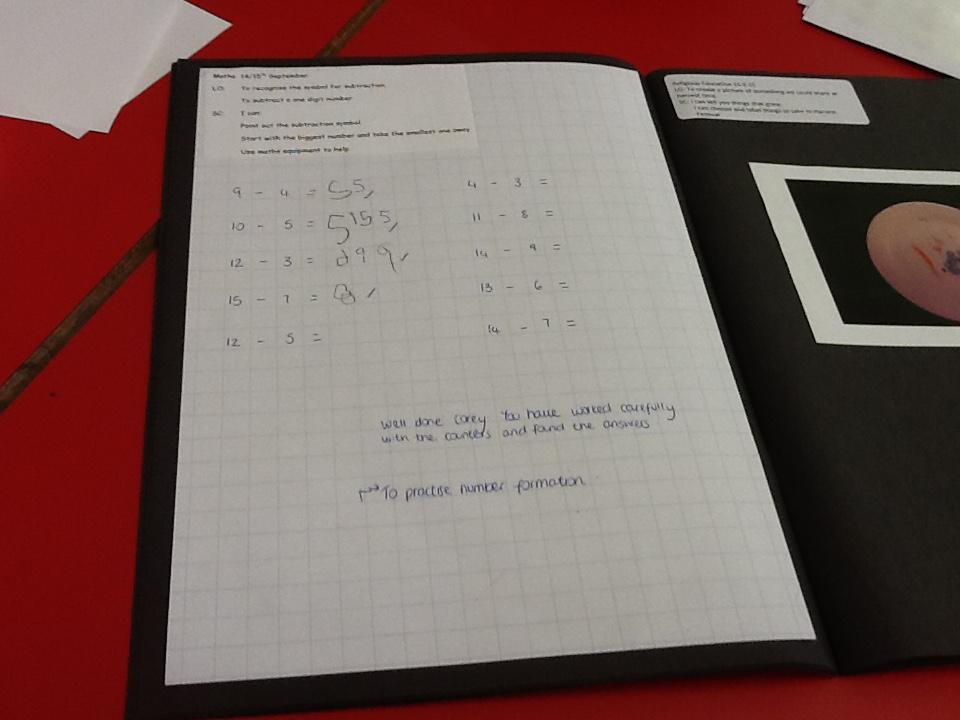 Maths 14/15th September
LO: To recognise the symbol for subtraction
To subtract a one digit number
SC: I can:
Point out the subtraction symbol
Start with the biggest number and take the smallest one away
Use maths equipment to help
9 - 4 = 5 5,
10 - 5 = 5 15 5,
12 - 3 = 9 9
15 - 7 = 8
12 - 5 =
4 - 3 =
11 - 8 =
14 - 9 =
13 - 6 =
14 - 7 =
Well done Corey You have worked carefully
with the counters and found the answers
To practise number formation
Religious Education
LO: To create a picture of something we could share at
harvest time
SC: I can tell you things that grow
I can choose and label things to take to Harvest
Festival